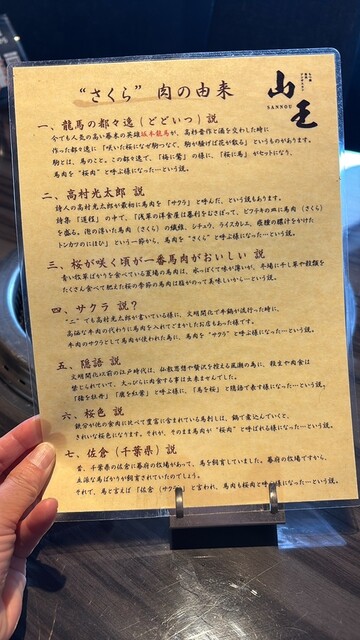 “さくら” 肉の由来
山王
SANNOU
一、龍馬の都々逸（どどいつ）説
今でも人気の高い幕末の英雄坂本龍馬が、高杉晋作と酒を交わした時に
作った都々逸に「咲いた桜になぜ駒つなぐ、駒が騒げば花が散る」というものがあります。
駒とは、馬のこと。この都々逸で、「梅に鶯」の様に、「桜に馬」がセットになり、
馬肉を“桜肉”と呼ぶ様になった…という説。
二、高村光太郎 説
詩人の高村光太郎が最初に馬肉を「サクラ」と呼んだ、という説もあります。
詩集「道程」の中で、「浅草の洋食屋は暴利をむさぼって、ビフテキの皿に馬肉（さくら）
を盛る。泡の浮いた馬肉（さくら）の繊維、シチュウ、ライスカレエ、癌腫の膿汁をかけた
トンカツのにほひ」という一節から、馬肉を“さくら”と呼ぶ様になった…という説。
三、桜が咲く頃が一番馬肉がおいしい 説
青い牧草ばかりを食べている夏場の馬肉は、水っぽくて味が薄いが、冬場に干し草や穀類を
たくさん食べて肥えた桜の季節の馬肉は脂がのって美味しいから…という説。
四、サクラ 説？
“二”でも高村光太郎が書いている様に、文明開化で牛鍋が流行った時に、
高価な牛肉の代わりに馬肉を入れてごまかしたお店もあった様です。
牛肉のサクラとして馬肉が使われた為に、馬肉を“サクラ”と呼ぶ様になった…という説。
五、隠語 説
文明開化以前の江戸時代は、仏教思想や贅沢を控える風潮の為に、殺生や肉食は
禁じられていて、大っぴらに肉食する事は出来ませんでした。
「猪を牡丹」「鹿を紅葉」と呼ぶ様に、「馬を桜」と隠語で表す様になった…という説。
六、桜色 説
鉄分が他の畜肉に比べて豊富に含まれている馬刺しは、鍋で煮込んでいくと、
きれいな桜色になります。それが、そのまま馬肉が“桜肉”と呼ばれる様になった…という説。
七、佐倉（千葉県）説
昔、千葉県の佐倉に幕府の牧場があって、馬を飼育していました。幕府の牧場ですから、
立派な馬ばかりが飼育されていたのでしょう。
それで、馬と言えば「佐倉（サクラ）」と言われ、馬肉も桜肉と呼ぶ様になった…という説。